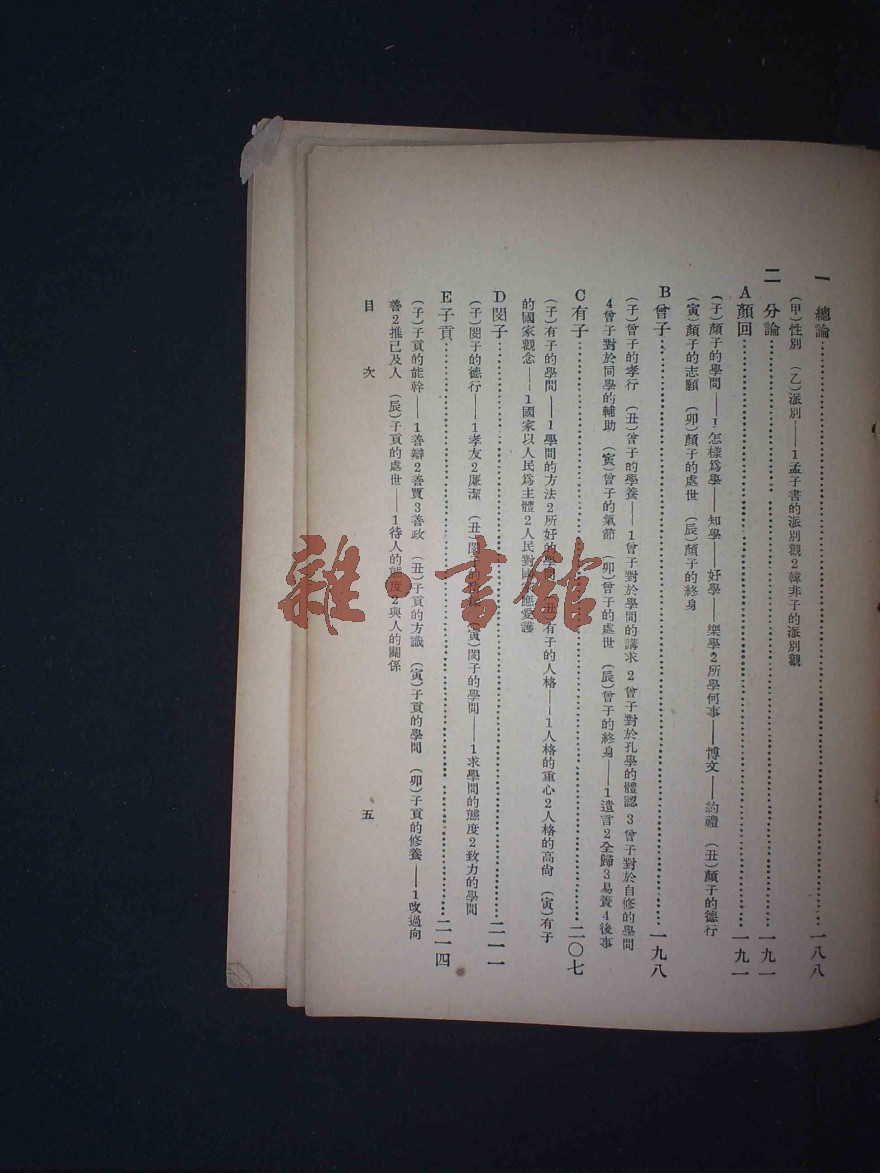 一 總論……一八八
(甲)性別 (乙)派別——1孟子書的派別觀2韓非子的派別觀
二 分論……一九一
A 顏回……一九一
(子)顏子的學問——1怎樣爲學——知學——好學——樂學2所學何事——博文——約禮 (丑)顏子的德行
(寅)顏子的志願 (卯)顏子的處世 (辰)顏子的終身
B 曾子……一九八
(子)曾子的孝行 (丑)曾子的學養——1曾子對於學問的講求 2 曾子對於孔學的體認 3 曾子對於自修的學問
4曾子對於同學的輔助 (寅)曾子的氣節 (卯)曾子的處世 (辰)曾子的終身——1遺言2全歸3易簀4後事
C 有子……二〇七
(子)有子的學問——1學問的方法2所好的學問 (丑)有子的人格——1人格的重心2人格的高尙 (寅)有子
的國家觀念——1國家以人民爲主體2人民對國應愛護
D 閔子……二一一
(子)閔子的德行——1孝友2廉潔 (丑)閔子的 (寅)閔子的學問——1求學問的態度2致力的學問
E 子貢……二一四
(子)子貢的能幹——1善辯2善賈3善政 (丑)子貢的方識 (寅)子貢的學問 (卯)子貢的修養——1改過向
善2推己及人 (辰)子貢的處世——1待人的態度2與人的關係
目 次 五
雜·書館